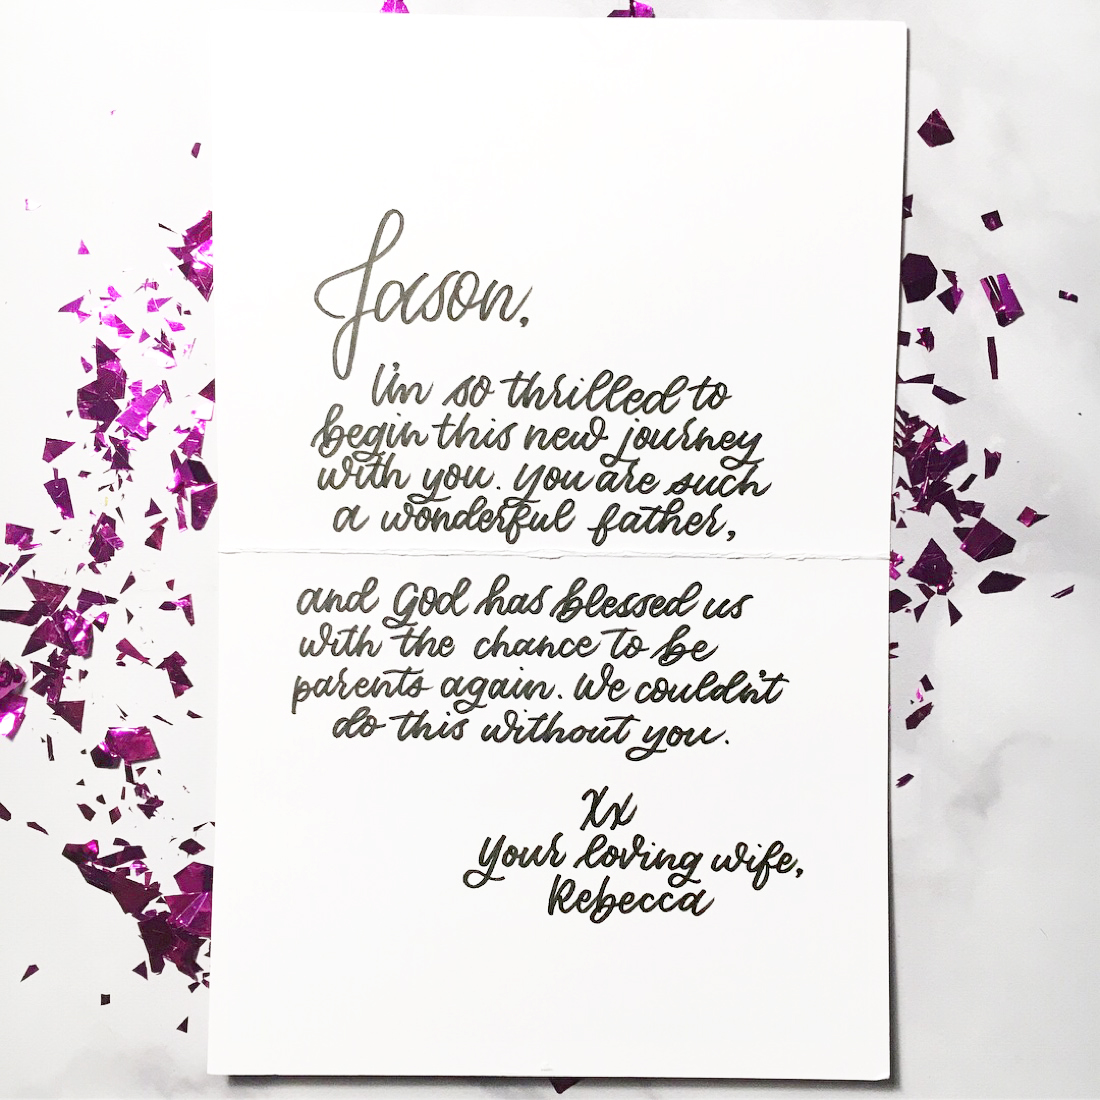 Jason,
I'm so thrilled to
begin this new journey
with you. You are such
a wonderful father,
and God has blessed us
with the chance to be
parents again. We couldn't
do this without you.
Xx
Your loving wife,
Rebecca